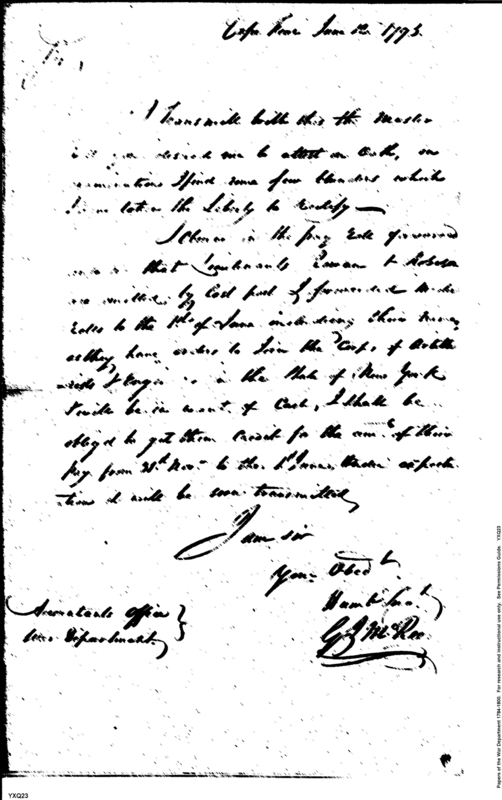 Cape Fear June 12. 1795.
Sir,
I transmit with this the Muster
you desired me to attest on Oath, on
examination I find some few blunders which
I have taken the Liberty to Rectify —
I observe in the pay Role forwarded
that Lieutenants & Robeson
are omitted, by last post I forwarded
Roles to the 1st of June including their names
as they have orders to Join the Corps of Artille
rists & Engrs in the State of New York
& will be in want of Cash, I shall be
oblig'd to get them Credit for the amt of their
pay from Novr to the 1st June, under expecta
tion it will be soon transmitted
I am sir
Your Obedt
Humbl Servt
G J McRee
Accountants office
War Department
YXQ23
Papers of the War Department 1784-1800. For research and instructional use only. See Permissions Guide. YXQ23